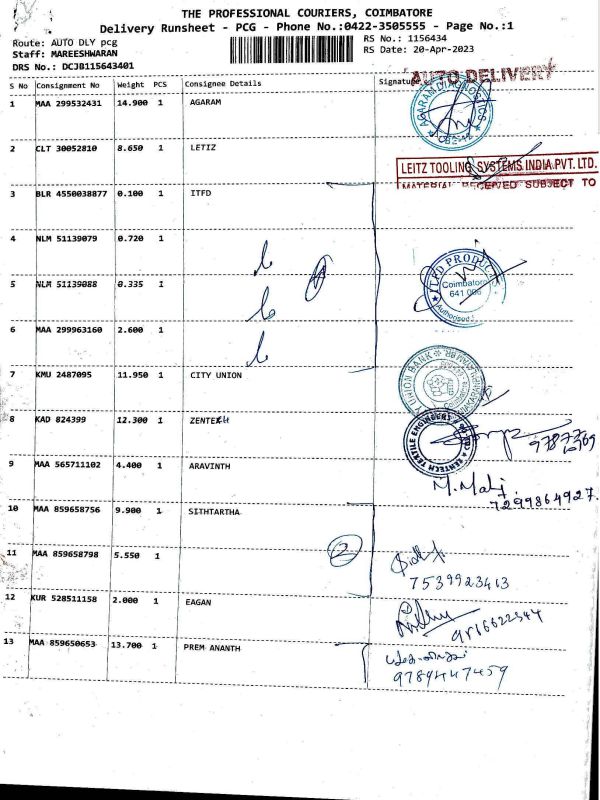 THE PROFESSIONAL COURIERS, COIMBATORE
Delivery Runsheet - PCG - Phone No.:0422-3505555 - Page No.:1
Route: AUTO DLY pcg
RS No.: 1156434
Staff: MAREESHWARAN
RS Date: 20-Apr-2023
DRS No.: DCJB115643401
S No Consignment No Weight PCS Consignee Details Signature
AUTO DELIVERY
1 MAA 299532431 14.900 1 AGARAM
AGARAM DIAGNOSTICS
2 CLT 30052810 8.650 1 LETIZ
LEITZ TOOLING SYSTEMS INDIA PVT. LTD.
MATERIAL RECEIVED SUBJECT TO
3 BLR 4550038877 0.100 1 ITFD
4 NLM 51139079 0.720 1
ITFD PRODUC
Coimbatore
641 006
Authorised
5 NLM 51139088 0.335 1
6 MAA 299963160 2.600 1
7 KMU 2487095 11.950 1 CITY UNION
UNION BANK
8 KAD 824399 12.300 1 ZENTECH
TEXTILE ENGINEERS
9 MAA 565711102 4.400 1 ARAVINTH
M. Mali
7299864927.
10 MAA 859658756 9.900 1 SITHTARTHA
2
11 MAA 859658798 5.550 1
7539923413
12 KUR 528511158 2.000 1 EAGAN
9816622344
13 MAA 859650653 13.700 1 PREM ANANTH
9789447459